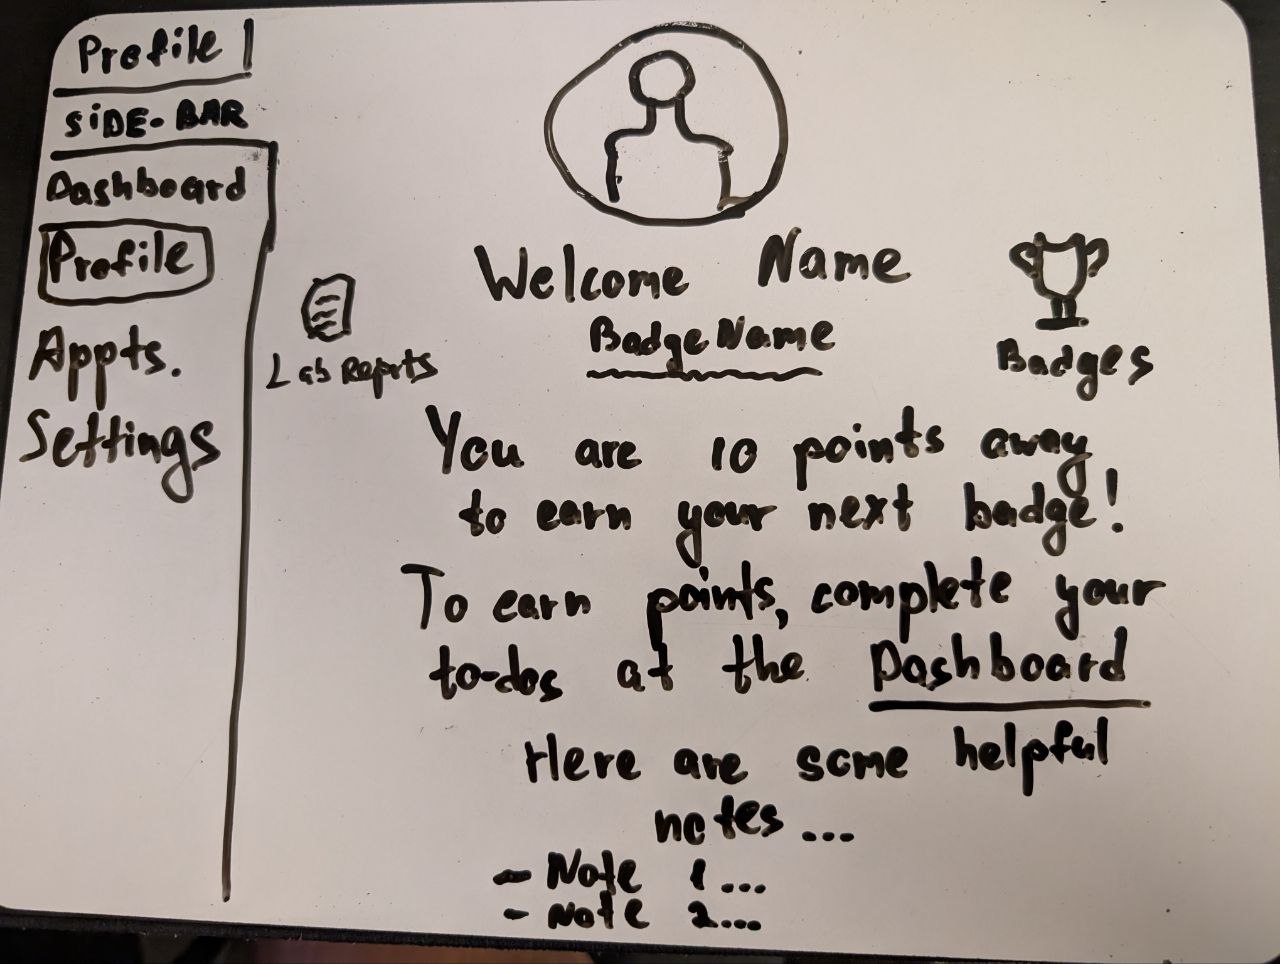 Profile
SiDE-BAR
Dashboard
Profile
Appts.
Settings
Welcome Name
BadgeName
Lab Reports
Badges
You are 10 points away
to earn your next badge!
To earn points, complete your
to-dos at the Dashboard
Here are some helpful
notes ...
- Note 1...
- Note 2...